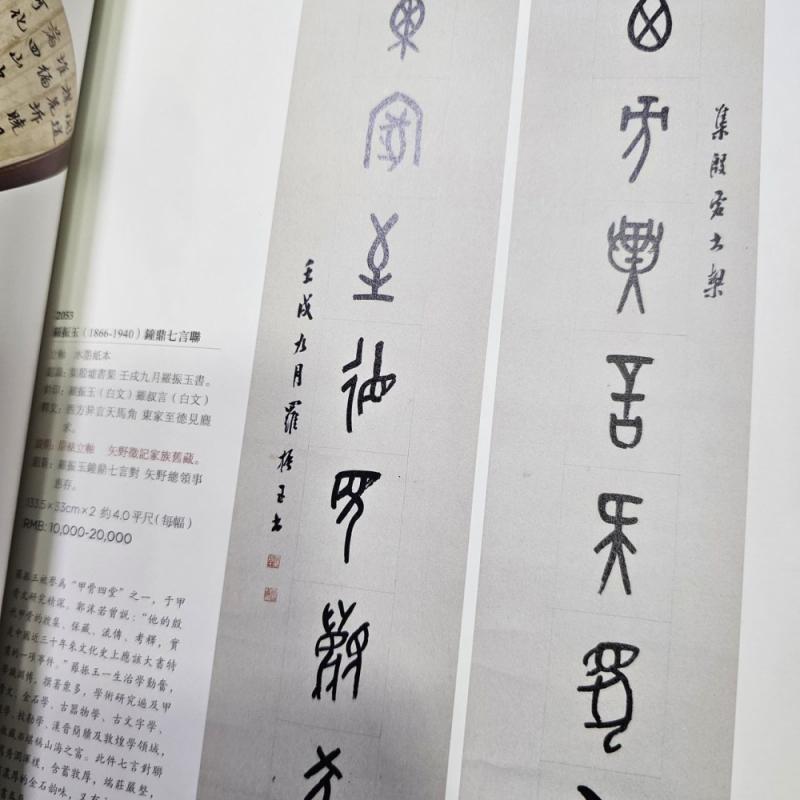 集殷虛書栔
西方異言天馬
東家至德見
壬戌九月羅振玉書
2053
羅振玉（1866-1940）鐘鼎七言聯
立軸 水墨紙本
集殷墟書栔 壬戌九月羅振玉書。
鈐印：羅振玉（白文）羅叔言（白文）
釋文：西方异言天馬角 東家至德見麐
來。
說明：原裱立軸 矢野徵記家族舊藏。
題簽：羅振玉鐘鼎七言對 矢野總領事
惠存。
133.5×33cm×2 約4.0平尺（每幅）
RMB: 10,000-20,000
羅振玉被譽為“甲骨四堂”之一，于甲
骨文研究精深。郭沫若曾說：“他的殷
代甲骨的搜集、保藏、流傳、考釋，實
是中國近三十年來文化史上應該大書特
書的一項事件。”羅振玉一生治學勤奮，
學識淵博，撰著眾多，學術研究遍及甲
骨文、金石學、古器物學、古文字學、
學、校勘學、漢晉簡牘及敦煌學領域，
收藏亦堪稱山海之富。此件七言對聯
渾樸，含蓄敦厚，端莊嚴整，
厚的金石韻味，又有